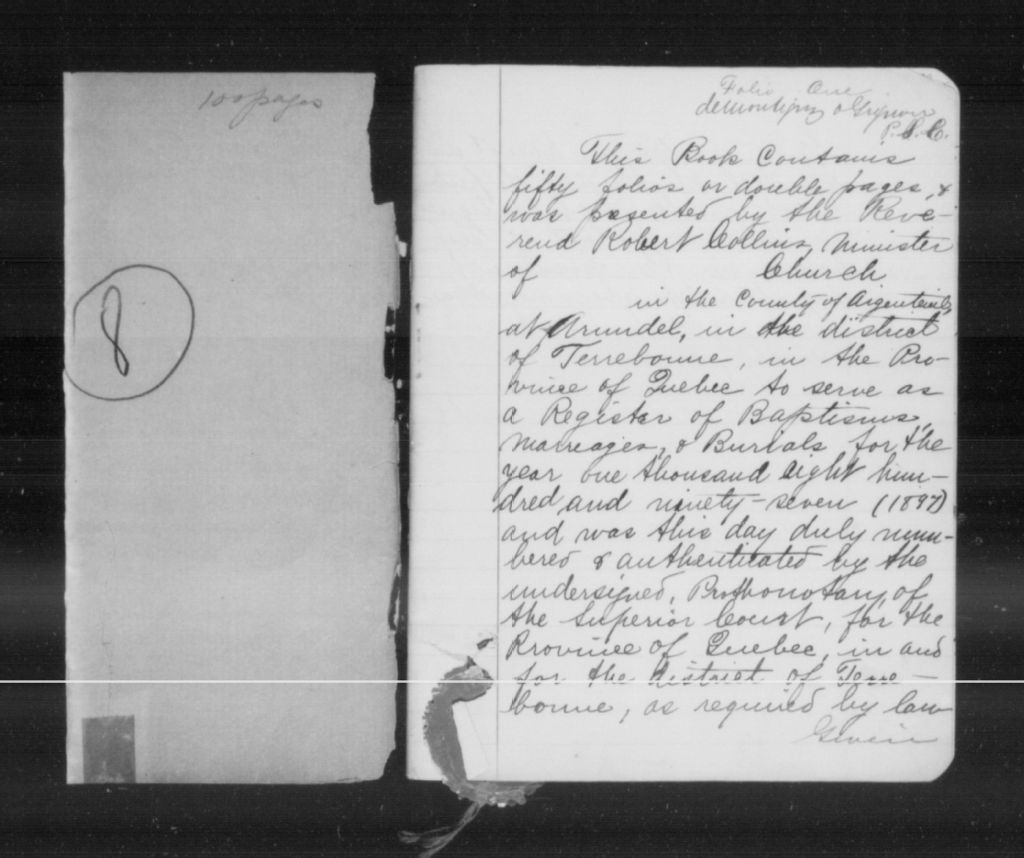 100 pages
8
Folio One
deMontigny & Grignon
P.S.C.
This Book Contains
fifty folios or double pages, &
was presented by the Reve-
rend Robert Collins, Minister
of Church
in the County of Argenteuil,
at Arundel, in the district
of Terrebonne, in the Pro-
vince of Quebec to serve as
a Register of Baptisms,
Marreages, & Burials for the
year one thousand eight hun-
dred and ninety-seven (1897)
and was this day duly num-
bered & authenticated by the
undersigned, Prothonotary of
the Superior Court, for the
Province of Quebec, in and
for the district of Terre-
bonne, as required by law
Given